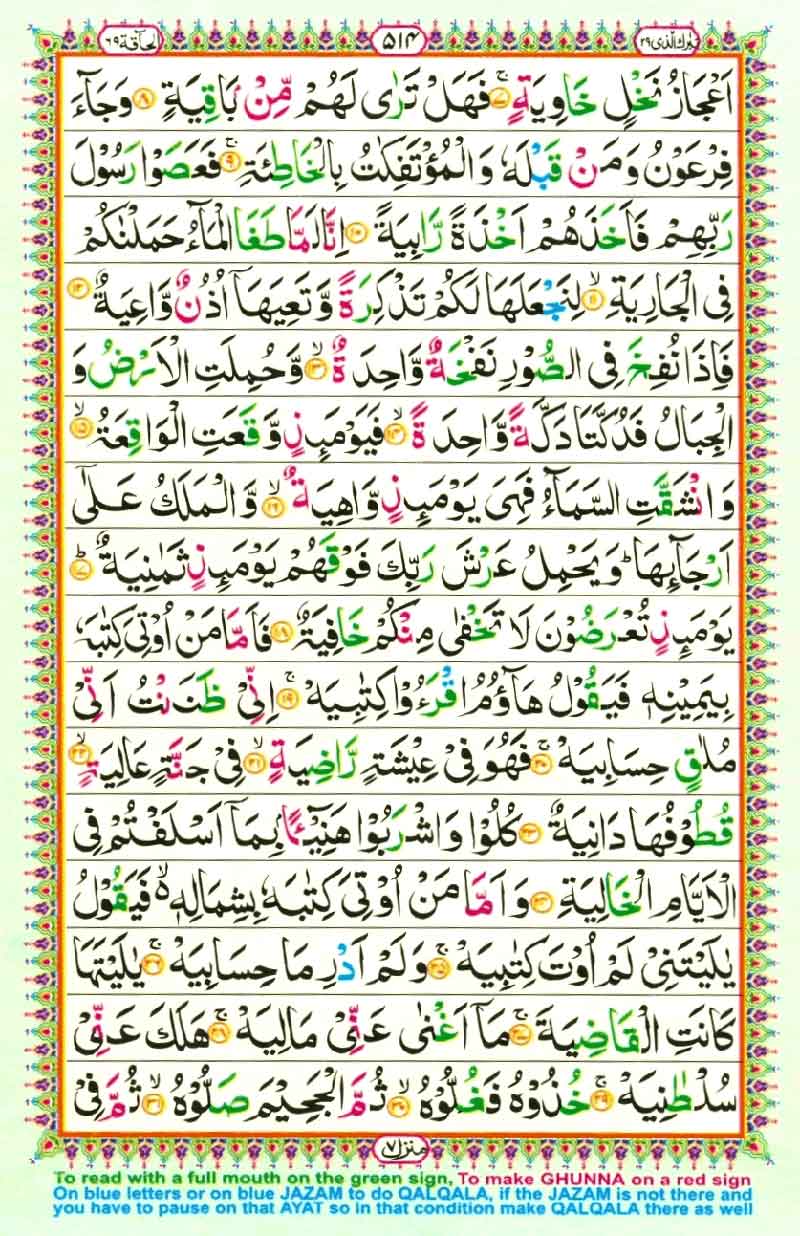 تبٰرك الذی ۲۹
۵۱۴
الحآقة ۶۹
اَعْجَازُ نَخْلٍ خَاوِیَةٍ ۚ﴿۷﴾ فَهَلْ تَرٰی لَهُمْ مِّنْۢ بَاقِیَةٍ ﴿۸﴾ وَجَآءَ
فِرْعَوْنُ وَمَنْ قَبْلَهٗ وَالْمُؤْتَفِكٰتُ بِالْخَاطِئَةِ ۚ﴿۹﴾ فَعَصَوْا رَسُوْلَ
رَبِّهِمْ فَاَخَذَهُمْ اَخْذَةً رَّابِیَةً ﴿۱۰﴾ اِنَّا لَمَّا طَغَا الْمَآءُ حَمَلْنٰكُمْ
فِی الْجَارِیَةِ ۙ﴿۱۱﴾ لِنَجْعَلَهَا لَكُمْ تَذْكِرَةً وَّتَعِیَهَاۤ اُذُنٌ وَّاعِیَةٌ ﴿۱۲﴾
فَاِذَا نُفِخَ فِی الصُّوْرِ نَفْخَةٌ وَّاحِدَةٌ ۙ﴿۱۳﴾ وَّحُمِلَتِ الْاَرْضُ وَ
الْجِبَالُ فَدُكَّتَا دَكَّةً وَّاحِدَةً ۙ﴿۱۴﴾ فَیَوْمَئِذٍ وَّقَعَتِ الْوَاقِعَةُ ۙ﴿۱۵﴾
وَانْشَقَّتِ السَّمَآءُ فَهِیَ یَوْمَئِذٍ وَّاهِیَةٌ ۙ﴿۱۶﴾ وَّالْمَلَكُ عَلٰۤی
اَرْجَآئِهَا ؕ وَیَحْمِلُ عَرْشَ رَبِّكَ فَوْقَهُمْ یَوْمَئِذٍ ثَمٰنِیَةٌ ؕ﴿۱۷﴾
یَوْمَئِذٍ تُعْرَضُوْنَ لَا تَخْفٰی مِنْكُمْ خَافِیَةٌ ﴿۱۸﴾ فَاَمَّا مَنْ اُوْتِیَ كِتٰبَهٗ
بِیَمِیْنِهٖ فَیَقُوْلُ هَآؤُمُ اقْرَءُوْا كِتٰبِیَهْ ۚ﴿۱۹﴾ اِنِّیْ ظَنَنْتُ اَنِّیْ
مُلٰقٍ حِسَابِیَهْ ۚ﴿۲۰﴾ فَهُوَ فِیْ عِیْشَةٍ رَّاضِیَةٍ ۙ﴿۲۱﴾ فِیْ جَنَّةٍ عَالِیَةٍ ۙ﴿۲۲﴾
قُطُوْفُهَا دَانِیَةٌ ﴿۲۳﴾ كُلُوْا وَاشْرَبُوْا هَنِیْٓئًۢا بِمَاۤ اَسْلَفْتُمْ فِی
الْاَیَّامِ الْخَالِیَةِ ﴿۲۴﴾ وَاَمَّا مَنْ اُوْتِیَ كِتٰبَهٗ بِشِمَالِهٖ ۙ فَیَقُوْلُ
یٰلَیْتَنِیْ لَمْ اُوْتَ كِتٰبِیَهْ ۚ﴿۲۵﴾ وَلَمْ اَدْرِ مَا حِسَابِیَهْ ۚ﴿۲۶﴾ یٰلَیْتَهَا
كَانَتِ الْقَاضِیَةَ ۚ﴿۲۷﴾ مَاۤ اَغْنٰی عَنِّیْ مَالِیَهْ ۚ﴿۲۸﴾ هَلَكَ عَنِّیْ
سُلْطٰنِیَهْ ۚ﴿۲۹﴾ خُذُوْهُ فَغُلُّوْهُ ۙ﴿۳۰﴾ ثُمَّ الْجَحِیْمَ صَلُّوْهُ ۙ﴿۳۱﴾ ثُمَّ فِیْ
منزل ۷
To read with a full mouth on the green sign, To make GHUNNA on a red sign
On blue letters or on blue JAZAM to do QALQALA, if the JAZAM is not there and
you have to pause on that AYAT so in that condition make QALQALA there as well